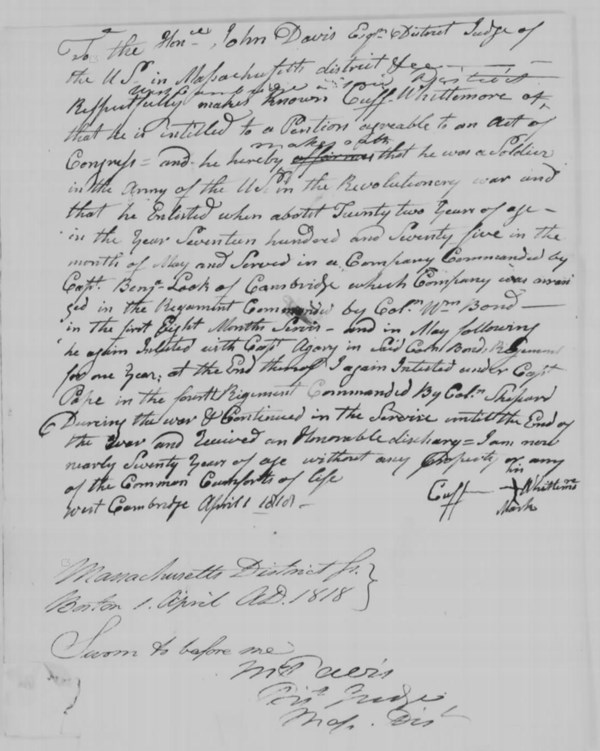 To the Honce. John Davis Esqr. District Judge of
the US. in Massachusetts district &c
Respectfully makes known Cuff Whittemore of,
West Cambridge in said district
that he is intitled to a Pention agreable to an Act of
makes oath
Congress = and he hereby affirms that he was a Soldier
in the Army of the US. in the Revolutionery war and
that he Enlisted when about Twenty two Year of age –
in the Year Seventeen hundred and Seventy five in the
month of May and Served in a Company Commanded by
Capt. Benjn. Lock of Cambridge which Company was arrain
ged in the Regament Commanded by Coln. Wm Bond —
in the first Eight Months Servis – and in May following
he again Inlisted with Capt Agary in Said Coln Bond, Regement
for one Year; at the End thereof I again Inlisted under Capt
Pope in the fourth Rigiment Commanded By Coln. Shepard
Dureing the war & Continued in the Servise untill the End of
the war and Received an Honorable discharg = I am now
nearly Seventy Year of age without any Property or any
of the Common Comforts of life
his
Cuff + Whittemore
Mark
West Cambridge April 1 1818 –
Massachusetts District Ss. }
Boston 1. April AD. 1818
Sworn to before me
Davis
Dist Judge
Mass. Dist